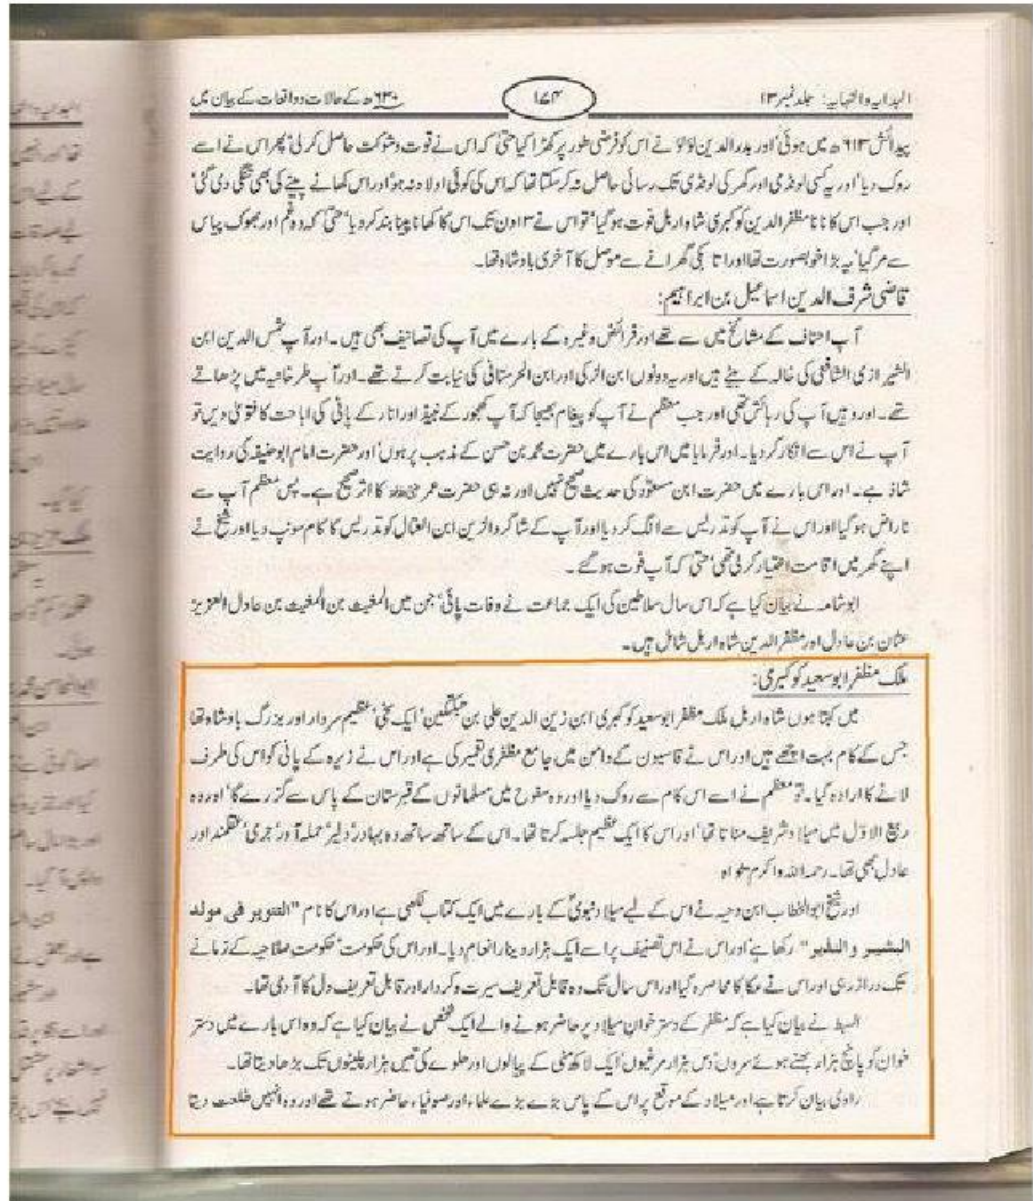 البدایہ والنہایہ: جلد نمبر ۱۳
۱۷۴
۶۳۰ھ کے حالات و واقعات کے بیان میں
پیدائش ۶۱۳ھ میں ہوئی' اور بدرالدین لؤلؤ نے اس کو فرضی طور پر کھڑا کیا حتیٰ کہ اس نے قوت و شوکت حاصل کر لی' پھر اس نے اسے
روک دیا' اور یہ کسی لونڈی اور گھر کی لونڈی تک رسائی حاصل نہ کر سکتا تھا کہ اس کی کوئی اولاد نہ ہو' اور اس کھانے پینے کی بھی تنگی دی گئی'
اور جب اس کا نانا مظفر الدین کوکبری شاہ اربل فوت ہو گیا' تو اس نے ۱۳ دن تک اس کا کھانا پینا بند کر دیا' حتیٰ کہ وہ غم اور بھوک پیاس
سے مر گیا' یہ بڑا خوبصورت تھا اور اتابکی گھرانے سے موصل کا آخری بادشاہ تھا۔
قاضی شرف الدین اسماعیل بن ابراہیم:
آپ احناف کے مشائخ میں سے تھے اور فرائض وغیرہ کے بارے میں آپ کی تصانیف بھی ہیں۔ اور آپ شمس الدین ابن
الشیرازی الشافعی کی خالہ کے بیٹے ہیں اور یہ دونوں ابن الزکی اور ابن الحرستانی کی نیابت کرتے تھے۔ اور آپ طرخانیہ میں پڑھاتے
تھے۔ اور وہیں آپ کی رہائش تھی اور جب معظم نے آپ کو پیغام بھیجا کہ آپ کھجور کے نبیذ اور انار کے پانی کی اباحت کا فتویٰ دیں تو
آپ نے اس سے انکار کر دیا۔ اور فرمایا میں اس بارے میں حضرت محمد بن حسن کے مذہب پر ہوں' اور حضرت امام ابوحنیفہ کی روایت
شاذ ہے۔ اور اس بارے میں حضرت ابن مسعودؓ کی حدیث صحیح نہیں اور نہ ہی حضرت عمرؓ کا اثر صحیح ہے۔ پس معظم آپ سے
ناراض ہو گیا اور اس نے آپ کو تدریس سے الگ کر دیا اور آپ کے شاگرد الزین ابن العتال کو تدریس کا کام سونپ دیا اور شیخ نے
اپنے گھر میں اقامت اختیار کر لی تھی' حتیٰ کہ آپ فوت ہو گئے۔
ابوشامہ نے بیان کیا ہے کہ اس سال سلاطین کی ایک جماعت نے وفات پائی' جن میں المغیث بن المغیث بن عادل العزیز
عثمان بن عادل اور مظفر الدین شاہ اربل شامل ہیں۔
ملک مظفر ابوسعید کوکبری:
میں کہتا ہوں شاہ اربل ملک مظفر ابوسعید کوکبری ابن زین الدین علی بن تبکتکین' ایک سخی' عظیم سردار اور بزرگ بادشاہ تھا
جس کے کام بہت اچھے ہیں اور اس نے قاسیون کے دامن میں جامع مظفری تعمیر کی ہے اور اس نے زیرہ کے پانی کو اس کی طرف
لانے کا ارادہ کیا۔ تو معظم نے اسے اس کام سے روک دیا اور وہ مفوح میں مسلمانوں کے قبرستان کے پاس سے گزرے گا' اور وہ
ربیع الاوّل میں میلاد شریف مناتا تھا' اور اس کا ایک عظیم جلسہ کرتا تھا۔ اس کے ساتھ ساتھ وہ بہادر' دلیر' حملہ آور' جری' عقلمند اور
عادل بھی تھا۔ رحمہ اللہ واکرم مثواہ
اور شیخ ابوالخطاب ابن دحیہ نے اس کے لیے میلاد نبویؐ کے بارے میں ایک کتاب لکھی ہے اور اس کا نام "التنویر فی مولد
البشیر و النذیر" رکھا ہے' اور اس نے اس تصنیف پر اسے ایک ہزار دینار انعام دیا۔ اور اس کی حکومت' حکومت صلاحیہ کے زمانے
تک دراز رہی اور اس نے عکا کا محاصرہ کیا اور اس سال تک وہ قابل تعریف سیرت و کردار اور قابل تعریف دل کا آدمی تھا۔
السبط نے بیان کیا ہے کہ مظفر کے دسترخوان میلاد پر حاضر ہونے والے ایک شخص نے بیان کیا ہے کہ وہ اس بارے میں دستر
خوان کو پانچ ہزار بھنے ہوئے سروں' دس ہزار مرغیوں' ایک لاکھ مٹی کے پیالوں اور حلوے کی تیس ہزار پلیٹوں تک بڑھا دیتا تھا۔
راوی بیان کرتا ہے اور میلاد کے موقع پر اس کے پاس بڑے بڑے علماء اور صوفیاء حاضر ہوتے تھے اور وہ انہیں خلعت دیتا